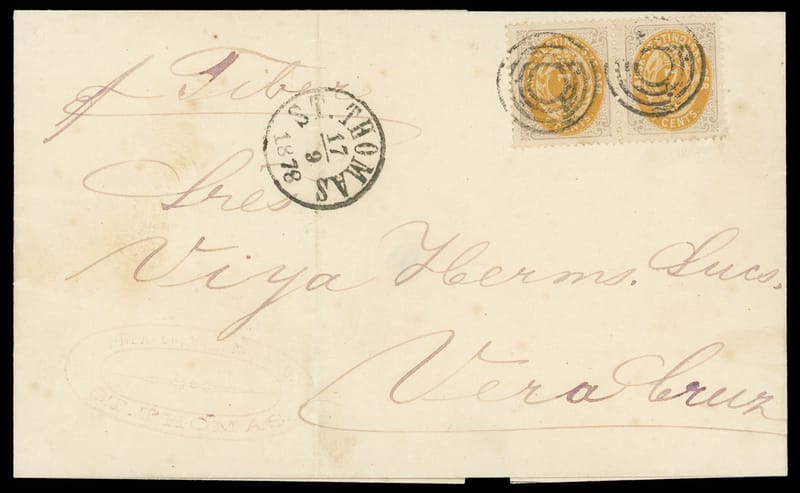 CENTS
CENTS
p Tiber
ST. THOMAS
17
9
1878
Sres
Viya Herms. Sucs.
Vera Cruz
ST. THOMAS